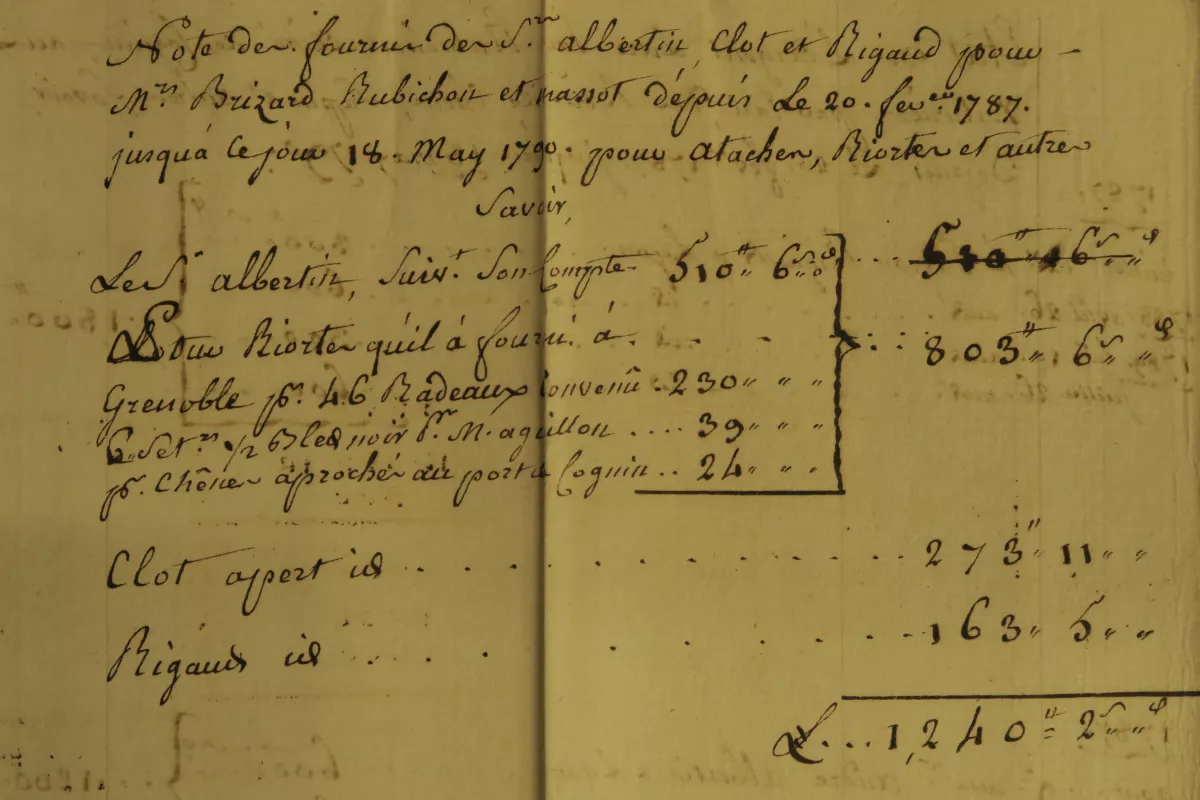 Note des fournis des Srs albertin, Clot et Rigaud pour
Mrs Brizard Rubichon et massot dépuis Le 20. fevrer 1787.
jusqu'a Ce jour 18. May 1790. pour atacher, Riorter et autres
Savoir,
Le Sr albertin, Suivt Son Compte 510" 6s 0d ... 510" 6s "d
Riorter qu'il à fourni à - - - 803" 6s "d
Grenoble pr. 46 Radeaux Convenû : 230" " "
6 Setrs 1/2 Bled noir pr M. aguillon .... 39" " "
pr. Chêner aprochés au port de Cognin .. 24" " "
Clot apert id . . . . . . . . . . . . . 273" 11" "
Rigaud id . . . . . . . 163" 5" "
L... 1,240" 2s "d